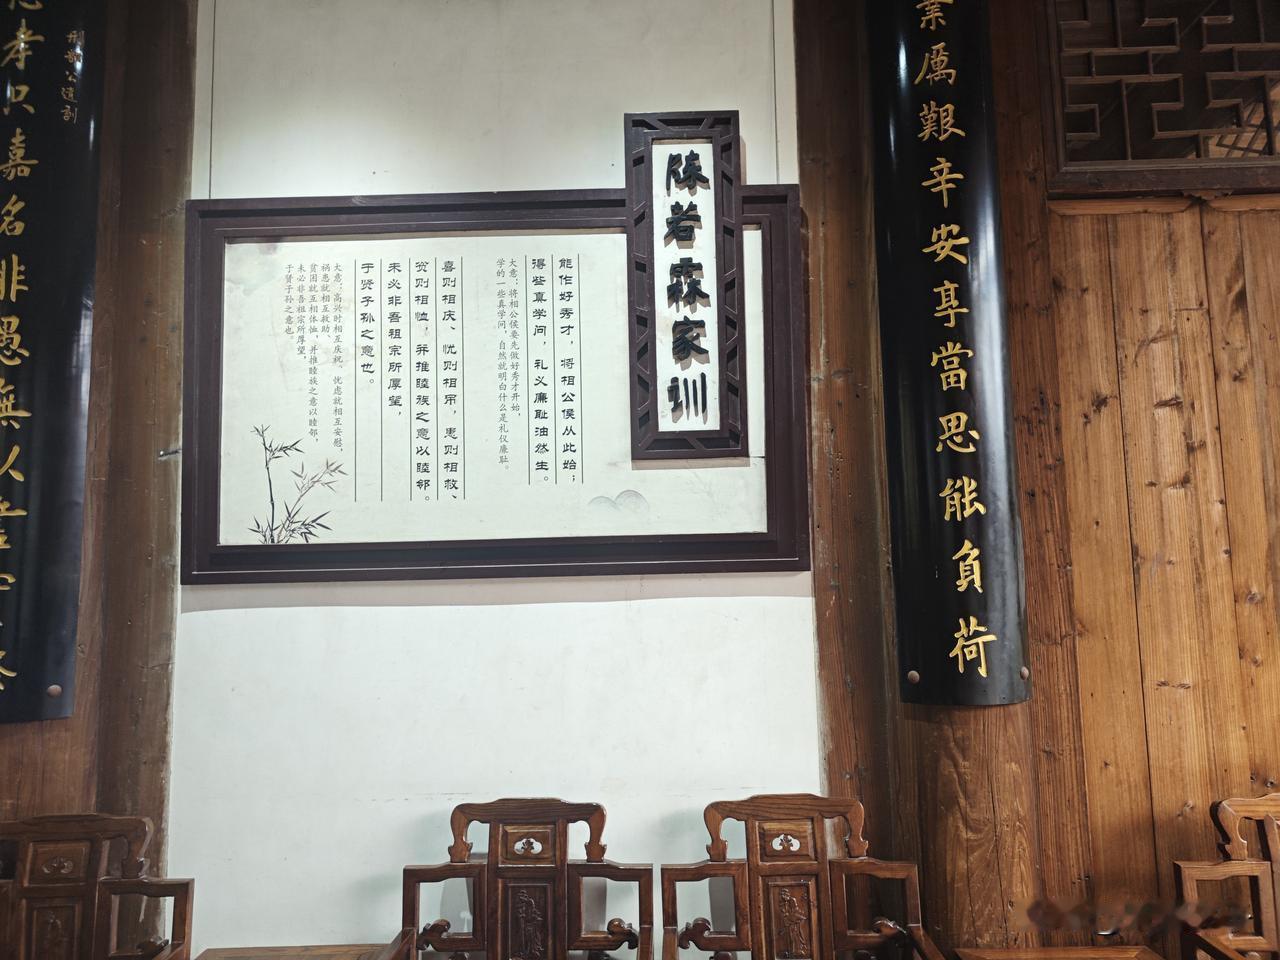 業厲艱辛安享當思能負荷
陈若霖家训
能作好秀才，将相公侯从此始；
得些真学问，礼义廉耻油然生。
大意：将相公侯要先做好秀才开始，
学的一些真学问，自然就明白什么是礼仪廉耻。
喜则相庆、忧则相吊，患则相救、
贫则相恤，并推睦族之意以睦邻。
未必非吾祖宗所厚望，
于贤子孙之意也。
大意：高兴时相互庆祝、忧虑就相互安慰，
祸患就相互救助、
贫困就互相体恤，并推睦族之意以睦邻，
未必非吾祖宗所厚望，
于贤子孙之意也。
孝只嘉名非愚無人
刑部公遺訓